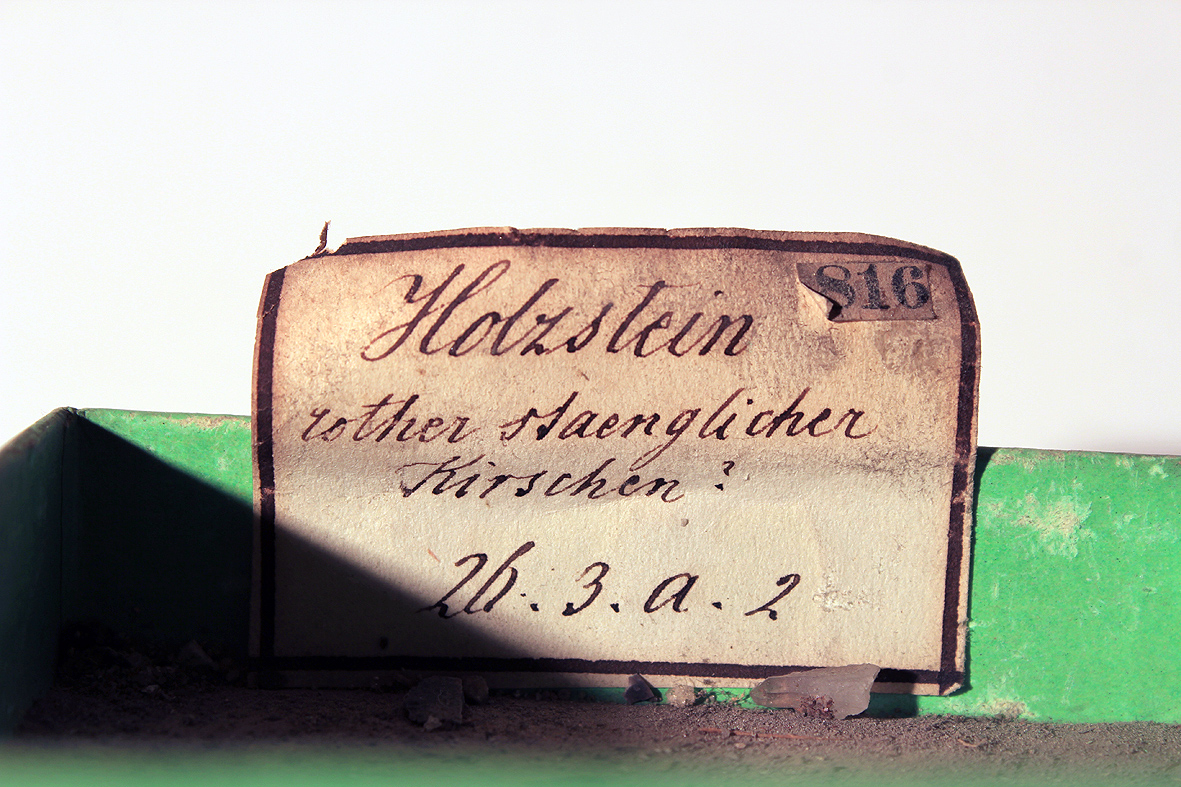 816
Holzstein
rother staenglicher
Kirschen?
2h. 3. a. 2